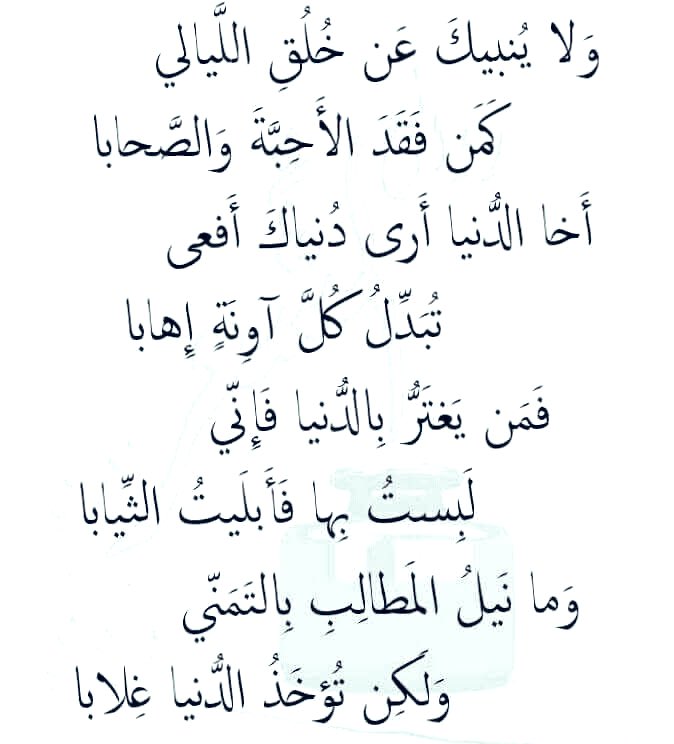 وَلا يُنبيكَ عَن خُلُقِ اللَّيالي
كَمَن فَقَدَ الأَحِبَّةَ وَالصَّحابا
أَخا الدُّنيا أَرى دُنياكَ أَفعى
تُبَدِّلُ كُلَّ آوِنَةٍ إِهابا
فَمَن يَغتَرُّ بِالدُّنيا فَإِنّي
لَبِستُ بِها فَأَبلَيتُ الثِّيابا
وَما نَيلُ المَطالِبِ بِالتَمَنّي
وَلَكِن تُؤخَذُ الدُّنيا غِلابا